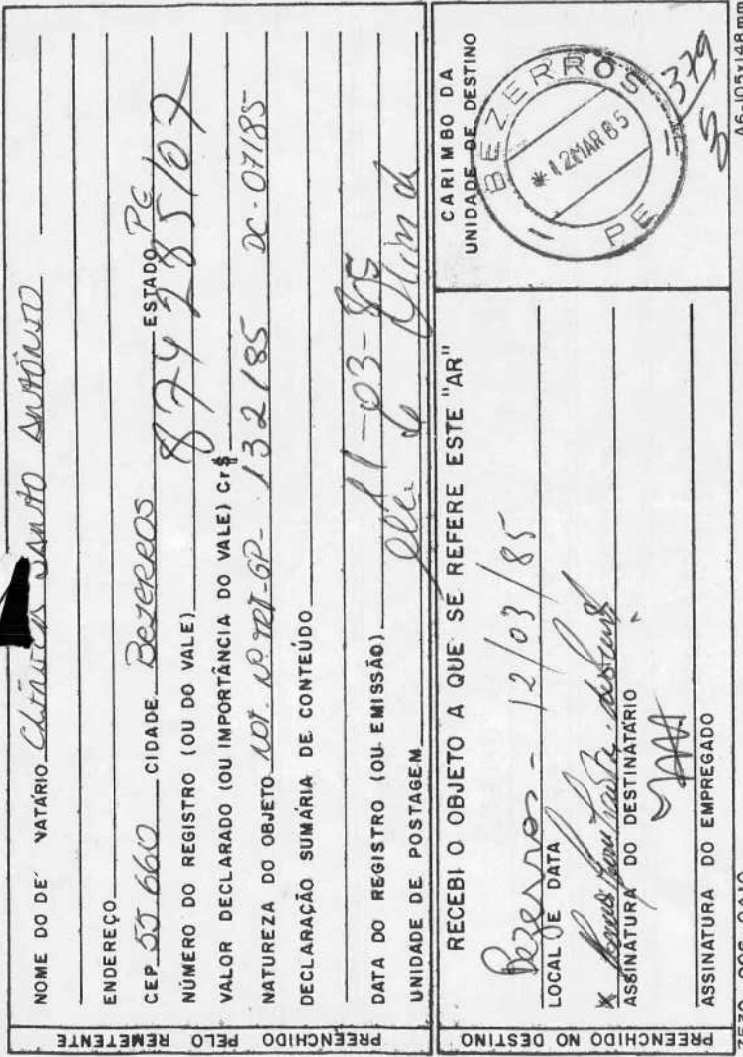 NOME DO DE VATÁRIO Clínica Santo Antônio
ENDEREÇO
CEP 55.660 CIDADE Bezerros ESTADO PE
NÚMERO DO REGISTRO (OU DO VALE) 874285/07
VALOR DECLARADO (OU IMPORTÂNCIA DO VALE) Cr$
NATUREZA DO OBJETO NOT. Nº TRT-GP- 132/85 DC-07/85
DECLARAÇÃO SUMÁRIA DE CONTEÚDO
DATA DO REGISTRO (OU EMISSÃO) 11-03-85
UNIDADE DE POSTAGEM
PREENCHIDO PELO REMETENTE
RECEBI O OBJETO A QUE SE REFERE ESTE "AR"
Bezerros - 12/03/85
LOCAL E DATA
ASSINATURA DO DESTINATÁRIO
ASSINATURA DO EMPREGADO
PREENCHIDO NO DESTINO
CARIMBO DA
UNIDADE DE DESTINO
BEZERROS
* 12MAR85
PE
379
7530-006-0410
A6-105x148mm